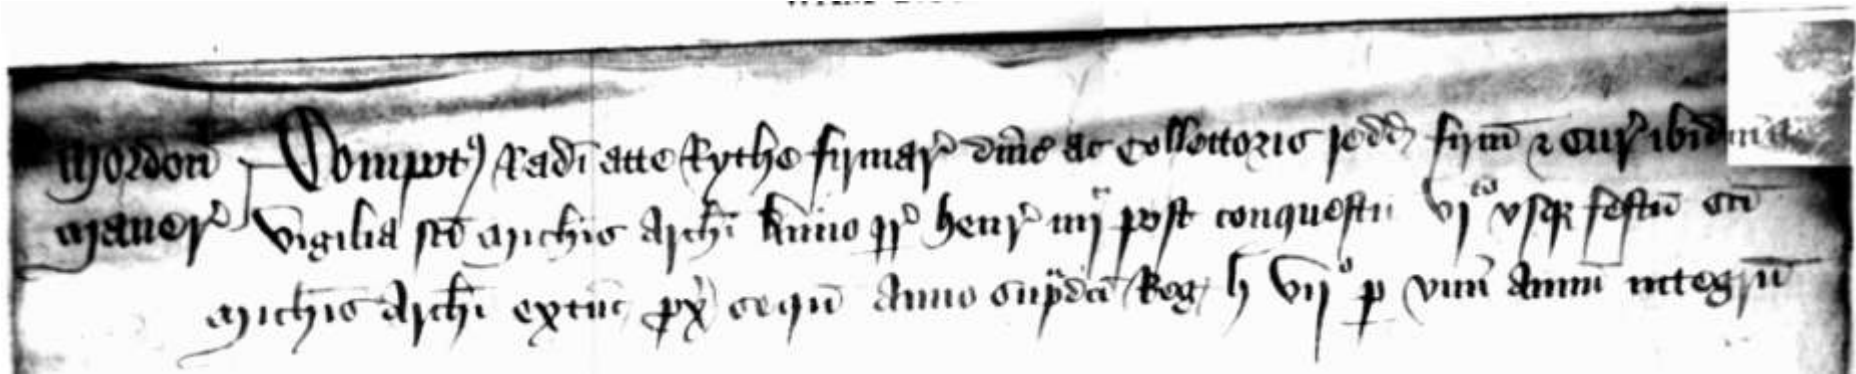 Mordon Compotus Radi atte Rythe firmar dnice ac Collectoris redd firm & cur ibidm a
Maner vigilia sci Michis Archi Anno rr Henr iiij post conquestu vjto usqz festu sci
Michis Archi extuc px sequ Anno supdci Reg h vijo p unu annu integru